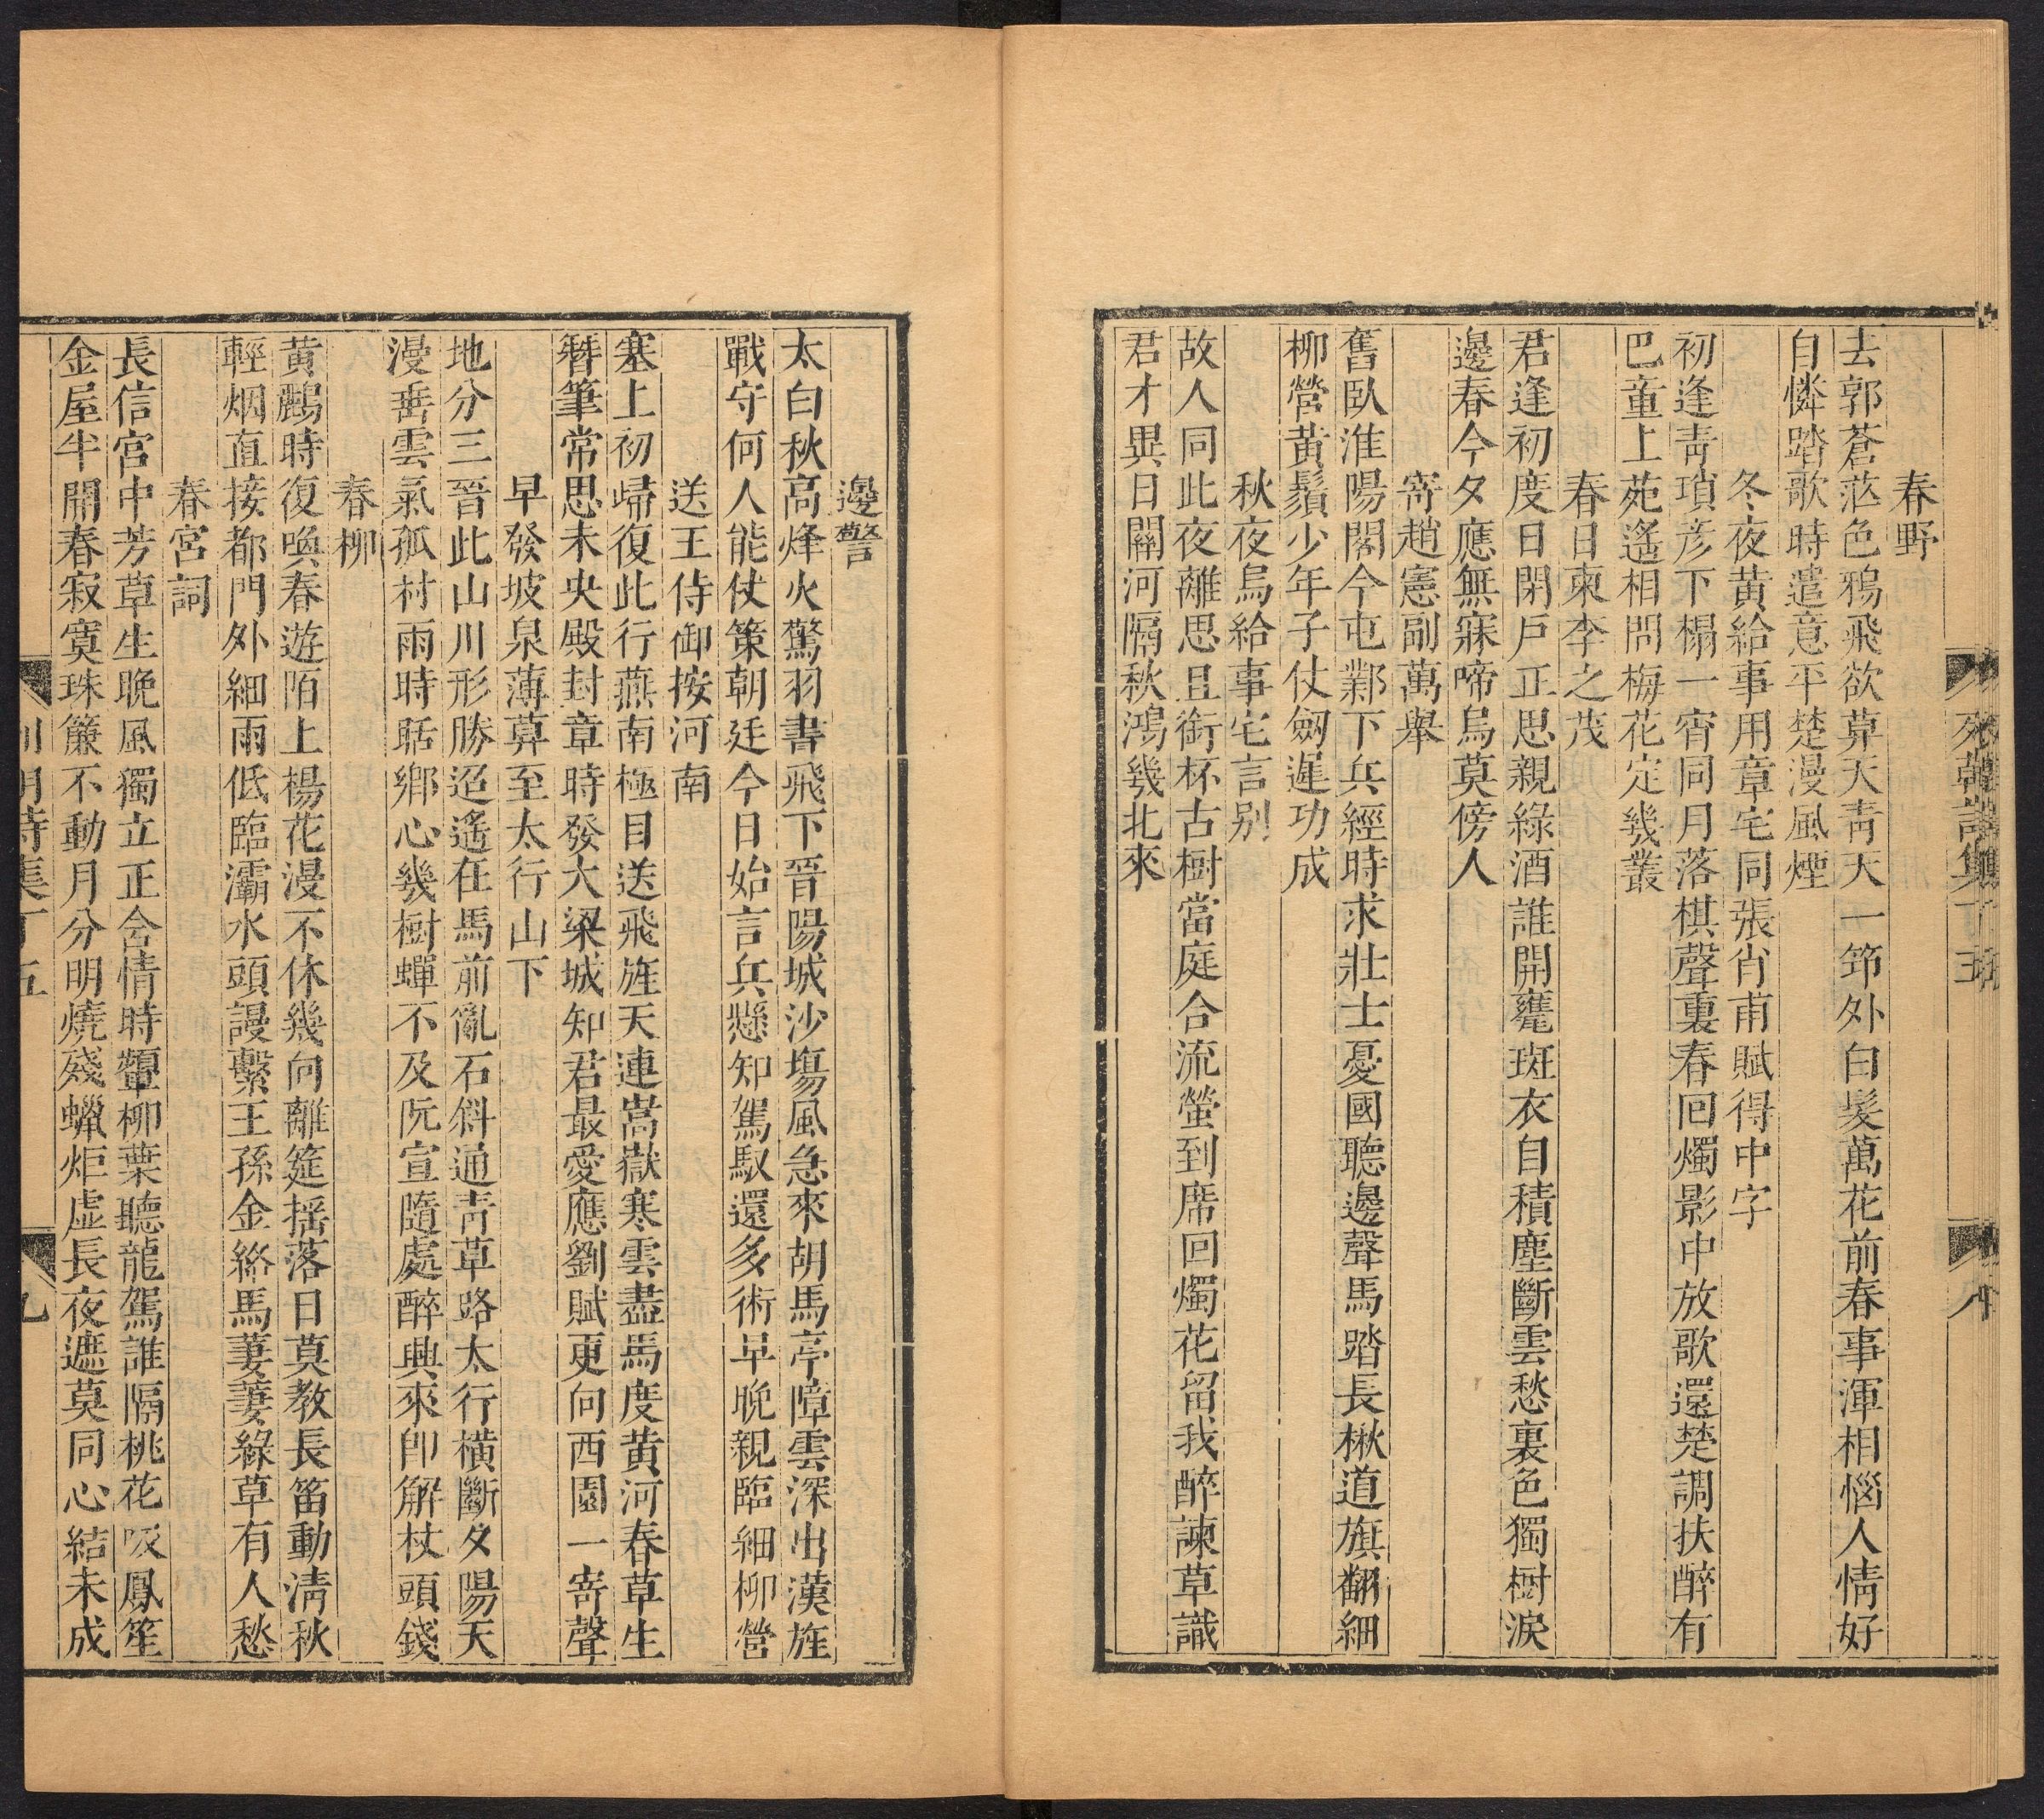 春野
去郭蒼茫色鴉飛欲暮天靑天一笻外白髮萬花前春事渾相惱人情好
自憐踏歌時遣意平楚漫風煙
冬夜黃給事用章宅同張肖甫賦得中字
初逢靑瑣彦下榻一宵同月落棋聲裏春回燭影中放歌還楚調扶醉有
巴童上苑遙相問梅花定幾叢
春日柬李之茂
君逢初度日閉戸正思親綠酒誰開甕斑衣自積塵斷雲愁裏色獨樹淚
邊春今夕應無寐啼烏莫傍人
寄趙憲副萬舉
舊臥淮陽閣今屯鄴下兵經時求壯士憂國聽邊聲馬踏長楸道旗翻細
柳營黃鬚少年子仗劒遲功成
秋夜烏給事宅言別
故人同此夜離思且銜杯古樹當庭合流螢到席回燭花留我醉諫草識
君才異日關河隔秋鴻幾北來
邊警
太白秋高烽火驚羽書飛下晉陽城沙塲風急來胡馬亭障雲深出漢旌
戰守何人能仗策朝廷今日始言兵懸知駕馭還多術早晩親臨細柳營
送王侍御按河南
塞上初歸復此行燕南極目送飛旌天連嵩嶽寒雲盡馬度黃河春草生
簪筆常思未央殿封章時發大梁城知君最愛應劉賦更向西園一寄聲
早發坡泉薄暮至太行山下
地分三晉此山川形勝迢遙在馬前亂石斜通靑草路太行橫斷夕陽天
漫垂雲氣孤村雨時聒鄉心幾樹蟬不及阮宣隨處醉興來卽解杖頭錢
春柳
黃鸝時復喚春遊陌上楊花漫不休幾向離筵揺落日莫教長笛動淸秋
輕烟直接都門外細雨低臨灞水頭謾繫王孫金絡馬萋萋綠草有人愁
春宮詞
長信宮中芳草生晩風獨立正含情時顰柳葉聽龍駕誰隔桃花吸鳳笙
金屋半開春寂寞珠簾不動月分明燒殘蠟炬虛長夜遮莫同心結未成